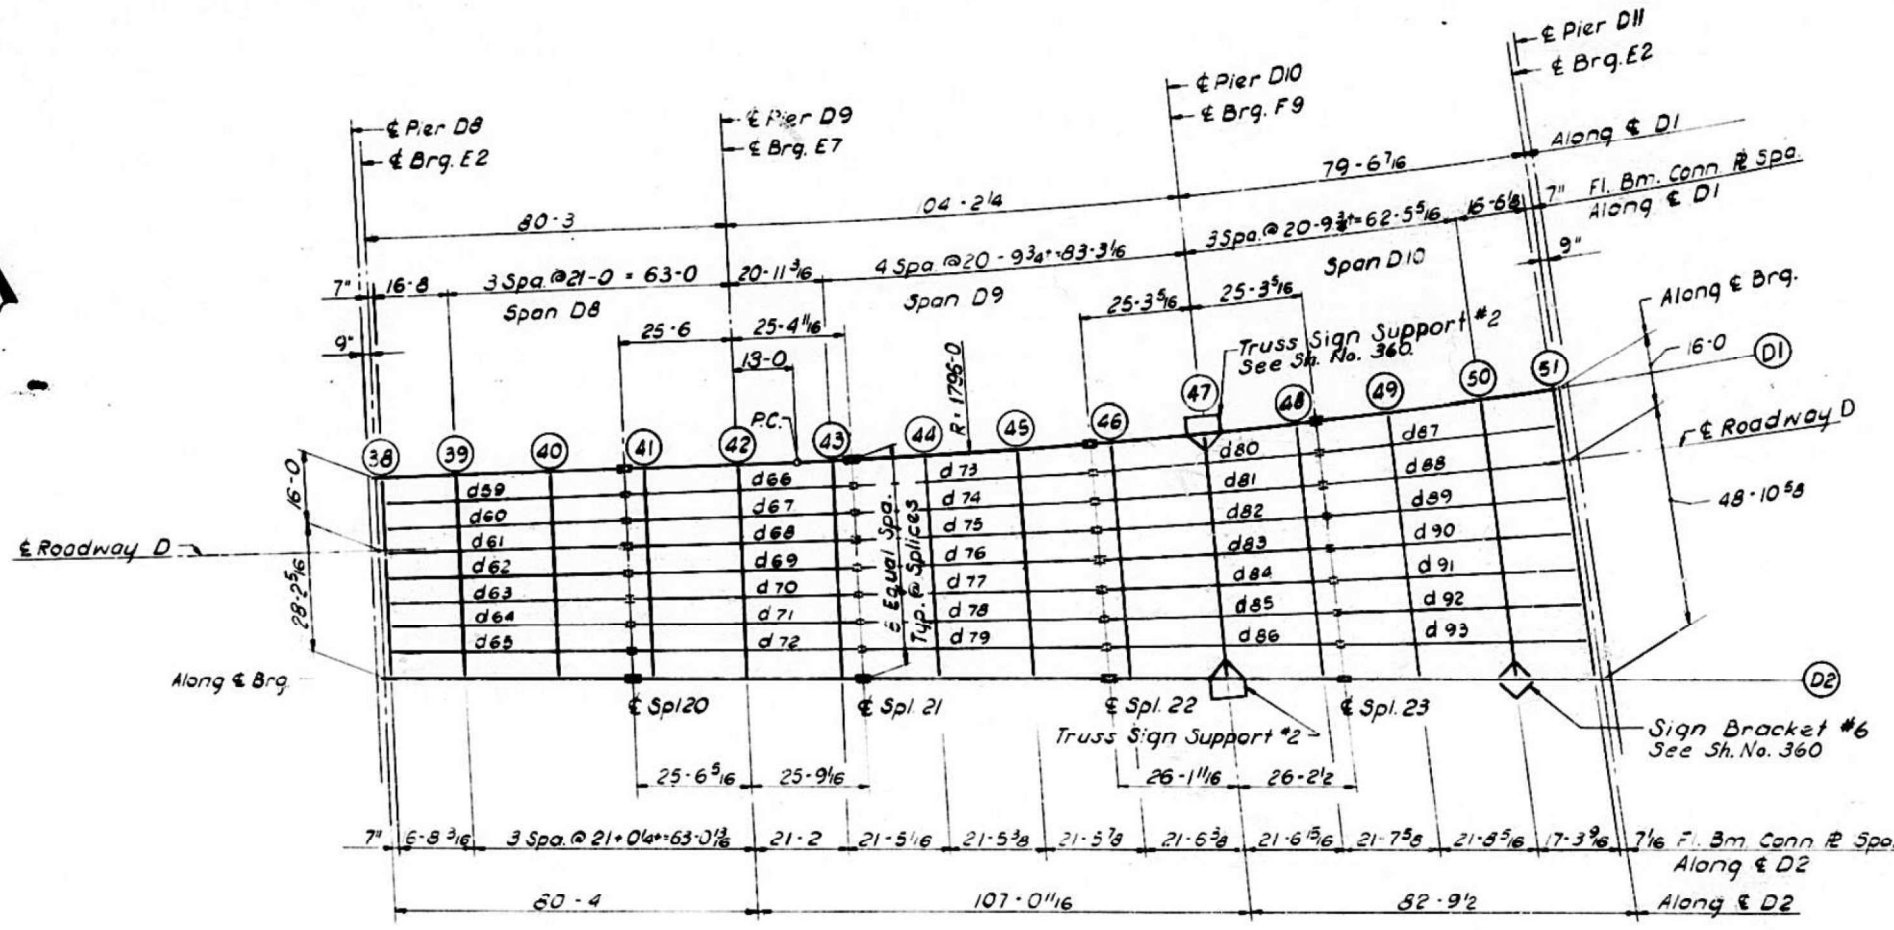 ℄ Pier D8
℄ Brg. E2
℄ Pier D9
℄ Brg. E7
℄ Pier D10
℄ Brg. F9
℄ Pier D11
℄ Brg. E2
80-3
104-2 1/4
79-6 7/16
Along ℄ D1
7" 16-8
3 Spa. @ 21-0 = 63-0
20-11 3/16
4 Spa. @ 20-9 3/4+ = 83-3 1/16
3 Spa. @ 20-9 3/4+ = 62-5 5/16
16-6 1/8
7" Fl. Bm. Conn. ℞ Spa.
Along ℄ D1
Span D8
Span D9
Span D10
9"
9"
25-6
25-4 11/16
13-0
25-3 5/16
25-3 5/16
Along ℄ Brg.
16-0
D1
Truss Sign Support #2
See Sh. No. 360.
P.C.
R = 1796-0
38
39
40
41
42
43
44
45
46
47
48
49
50
51
℄ Roadway D
48-10 5/8
16-0
℄ Roadway D
28-2 5/16
Along ℄ Brg.
d59
d60
d61
d62
d63
d64
d65
d66
d67
d68
d69
d70
d71
d72
8 Equal Spa.
Typ. @ Splices
d73
d74
d75
d76
d77
d78
d79
d80
d81
d82
d83
d84
d85
d86
d87
d88
d89
d90
d91
d92
d93
D2
℄ Spl 20
℄ Spl. 21
℄ Spl. 22
℄ Spl. 23
Truss Sign Support #2
Sign Bracket #6
See Sh. No. 360
25-6 5/16
25-9 1/16
26-1 11/16
26-2 1/2
7" 16-8 3/16
3 Spa. @ 21-0 1/4+ = 63-0 13/16
21-2
21-5 1/16
21-5 3/8
21-5 7/8
21-6 3/8
21-6 15/16
21-7 5/8
21-8 5/16
17-3 9/16
7 1/16 Fl. Bm. Conn ℞ Spa.
Along ℄ D2
80-4
107-0 11/16
82-9 1/2
Along ℄ D2